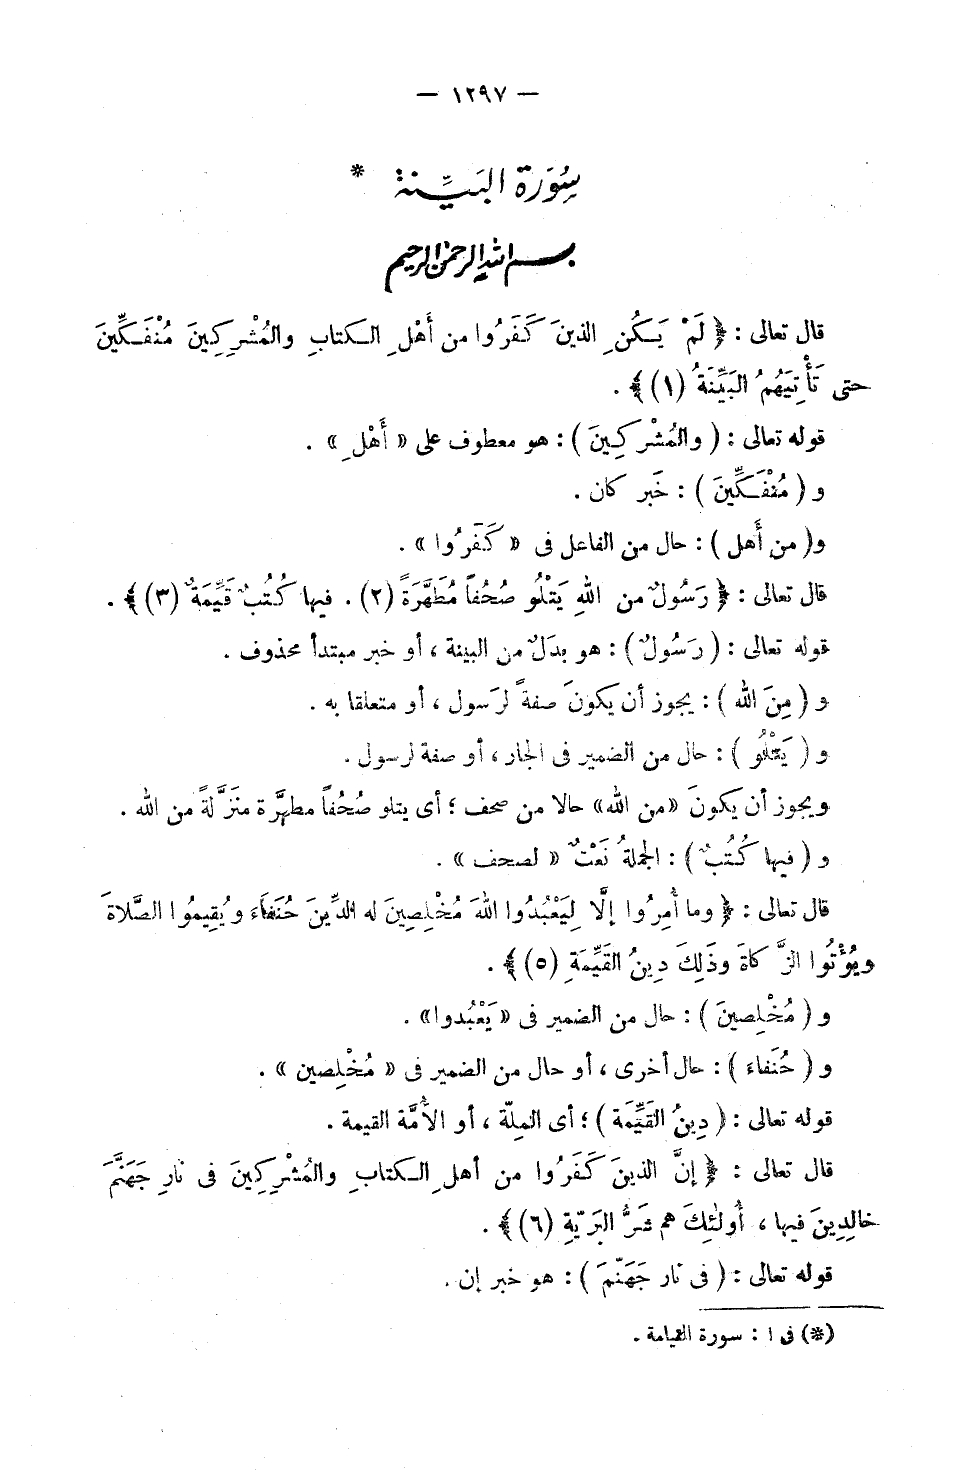 — ١٢٩٧ —
سُورَة البَيِّنة *
بسم الله الرحمن الرحيم
قال تعالى : ﴿ لَمْ يَكُنِ الذينَ كَفَرُوا من أَهْلِ الكتابِ والمُشْرِكِينَ مُنْفَكِّينَ
حتى تَأْتِيَهُمُ البَيِّنَةُ (١)﴾ .
قوله تعالى : ( والمُشْرِكِينَ ) : هو معطوف على « أَهْلِ » .
و ( مُنْفَكِّينَ ) : خَبر كان .
و( من أَهل ) : حال من الفاعل فى « كَفَرُوا » .
قال تعالى : ﴿ رَسُولٌ من اللهِ يَتْلُو صُحُفاً مُطَهَّرَةً (٢) . فيها كُتُبٌ قَيِّمَةٌ (٣)﴾ .
قوله تعالى : ( رَسُولٌ ) : هو بدَلٌ من البينة ، أو خبر مبتدأ محذوف .
و ( مِنَ الله ) : يجوز أن يكونَ صفةً لرَسول ، أو متعلقا به .
و ( يَتْلُو ) : حال من الضمير فى الجار ، أو صفة لرسول .
ويجوز أن يكونَ «من الله» حالا من صحف ؛ أى يتلو صُحُفاً مطهَّرة منَزَّلةً من الله .
و ( فيها كُتُبٌ ) : الجملةُ نَعْتٌ « لصحف » .
قال تعالى : ﴿ وما أُمِرُوا إلَّا لِيَعْبُدُوا اللهَ مُخْلِصِينَ له الدِّينَ حُنَفاَءَ ويُقِيمُوا الصَّلاةَ
ويُؤْتُوا الزَّكاةَ وذَلِكَ دِينُ القَيِّمَةِ (٥)﴾ .
و ( مُخْلِصينَ ) : حال من الضمير فى « يَعْبُدوا» .
و ( حُنَفاءَ ) : حال أخرى ، أو حال من الضمير فى « مُخْلِصين » .
قوله تعالى : ( دِينُ القَيِّمَة ) ؛ أى الملِّة ، أو الأُمَّة القيمة .
قال تعالى : ﴿ إنَّ الذينَ كَفَرُوا من أهلِ الكتابِ والمُشْرِكِينَ فى نارِ جَهَنَّمَ
خالِدِينَ فيها ، أُولٰئِكَ هم شَرُّ البَرِيّةِ (٦)﴾ .
قوله تعالى : ( فى نار جَهَنّمَ ) : هو خبر إن .
(*) فى ا : سورة القيامة .